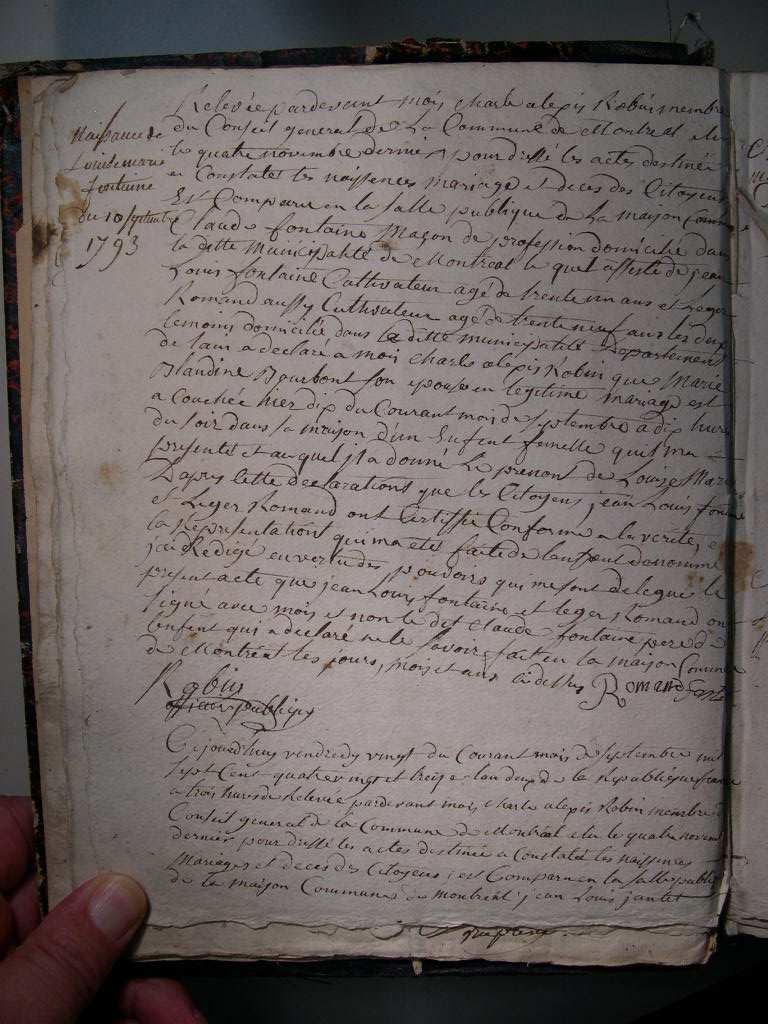 Naissance de
Louise marie
fontaine
du 10 septembre
1793
Relevée pardevant mois charle alexis Robin membre
du Conseil general de La Commune de Montreal elu
le quatre novembre dernier pour dressé les actes destinée
a Constaté les naissences mariage et deces des Citoyens
Est Comparu en la salle publique de la maison Commune
Claude fontaine Maçon de profession domicilié dans
la ditte municipalité de Montreal le quel assisté de jean
Louis fontaine Cultivateur agé de trente un ans et Leger
Romand aussy Cultivateur agé de trente neuf ans les deux
temoins domicilié dans la ditte municipalité Departement
de lain a declaré a mois charle alexis Robin que Marie
Blandine Bourbont son epouse en legitime mariage est
a couchée hier dix du Courant mois de septembre a dix hure
du soir dans sa maison d'un Enfent femelle quil ma
presenté et au quel il a donné Le prenont de Louise Marie
Dapres cette declarations que les Citoyens jean Louis fontaine
et Leger Romand ont Certiffié Conforme a la verité, et
la Representations qui ma eté faite de lenfent denommé
jai Redigé en vertu des pouvoirs qui me sont delegué le
present acte que jean Louis fontaine et leger Romand ont
signé avec mois et non le dit Claude fontaine pere de
lenfent qui a declaré ne le savoir, fait en la maison Commune
de Montreal les jours, mois et ans ci dessus Romand
Robin
officier publique
Cejourdhuy vendredy vingt du Courant mois de septembre mil
sept Cent quatre vingt et treize lan deux de la Republique francaise
a trois hures de Relevée pardevant mois charle alexis Robin membre du
Conseil general de la Commune de Montreal elu le quatre novembre
dernier pour dressé les actes destinée a Constaté les naissences
Mariages et deces des Citoyens ; est Comparu en la salle publique
de la maison Commune de Montreal jean Louis jantet